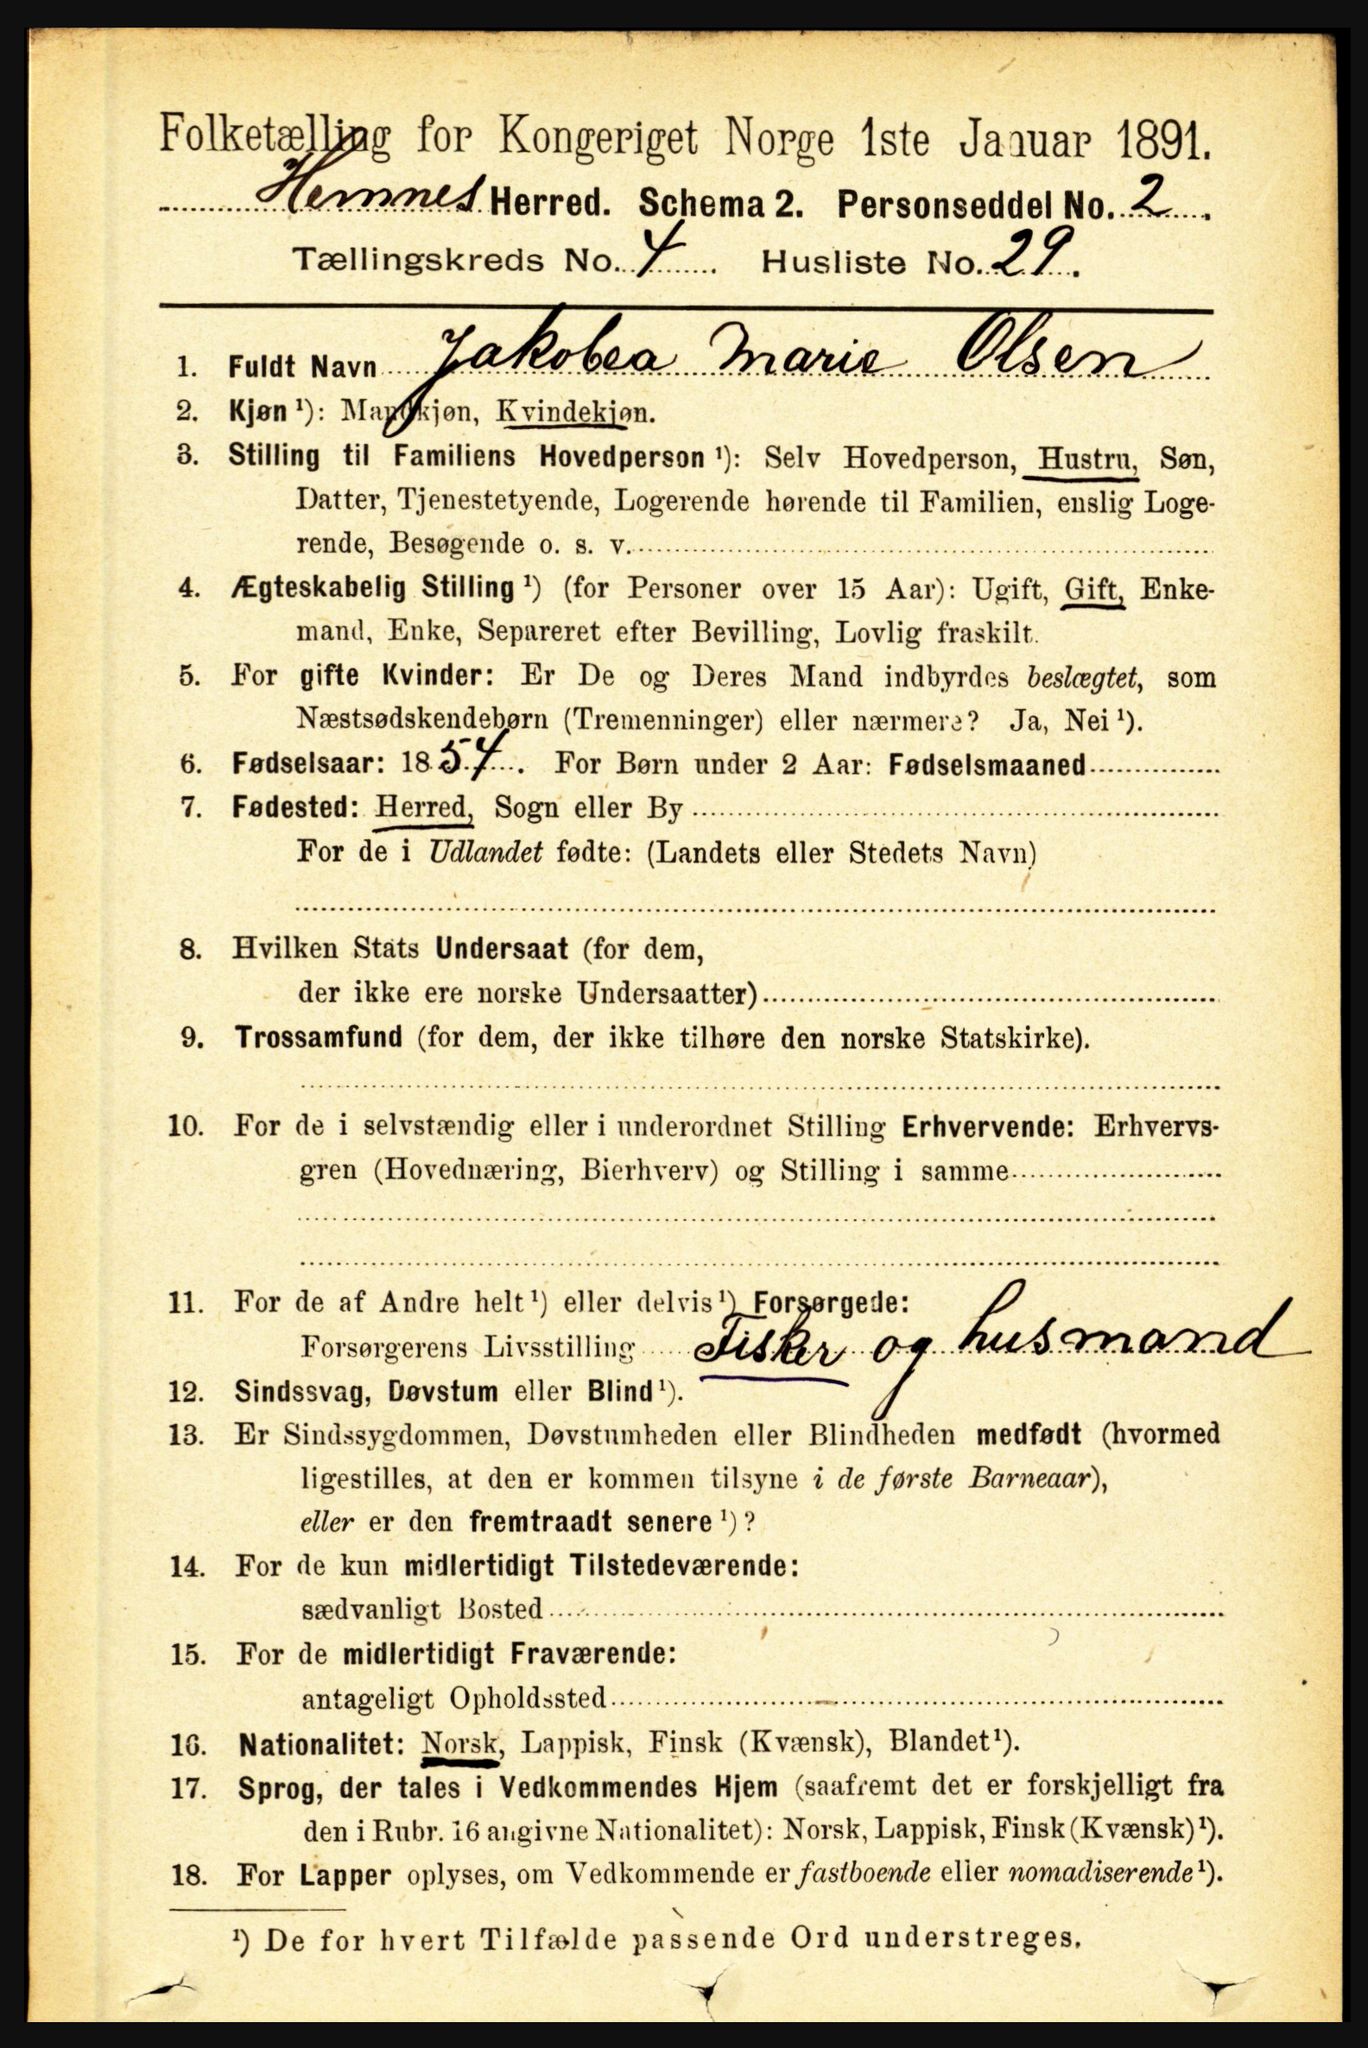 Folketælling for Kongeriget Norge 1ste Januar 1891.
Hemnes Herred. Schema 2. Personseddel No. 2.
Tællingskreds No. 4. Husliste No. 29.
1. Fuldt Navn Jakobea Marie Olsen
2. Kjøn ¹): Mandkjøn, Kvindekjøn.
3. Stilling til Familiens Hovedperson ¹): Selv Hovedperson, Hustru, Søn,
Datter, Tjenestetyende, Logerende hørende til Familien, enslig Loge-
rende, Besøgende o. s. v.
4. Ægteskabelig Stilling ¹) (for Personer over 15 Aar): Ugift, Gift, Enke-
mand, Enke, Separeret efter Bevilling, Lovlig fraskilt.
5. For gifte Kvinder: Er De og Deres Mand indbyrdes beslægtet, som
Næstsødskendebørn (Tremenninger) eller nærmere? Ja, Nei ¹).
6. Fødselsaar: 1854. For Børn under 2 Aar: Fødselsmaaned
7. Fødested: Herred, Sogn eller By
For de i Udlandet fødte: (Landets eller Stedets Navn)
8. Hvilken Stats Undersaat (for dem,
der ikke ere norske Undersaatter)
9. Trossamfund (for dem, der ikke tilhøre den norske Statskirke).
10. For de i selvstændig eller i underordnet Stilling Erhvervende: Erhvervs-
gren (Hovednæring, Bierhverv) og Stilling i samme
11. For de af Andre helt ¹) eller delvis ¹) Forsørgede:
Forsørgerens Livsstilling Fisker og husmand
12. Sindssvag, Døvstum eller Blind ¹).
13. Er Sindssygdommen, Døvstumheden eller Blindheden medfødt (hvormed
ligestilles, at den er kommen tilsyne i de første Barneaar),
eller er den fremtraadt senere ¹)?
14. For de kun midlertidigt Tilstedeværende:
sædvanligt Bosted
15. For de midlertidigt Fraværende:
antageligt Opholdssted
16. Nationalitet: Norsk, Lappisk, Finsk (Kvænsk), Blandet ¹).
17. Sprog, der tales i Vedkommendes Hjem (saafremt det er forskjelligt fra
den i Rubr. 16 angivne Nationalitet): Norsk, Lappisk, Finsk (Kvænsk) ¹).
18. For Lapper oplyses, om Vedkommende er fastboende eller nomadiserende ¹).
¹) De for hvert Tilfælde passende Ord understreges.